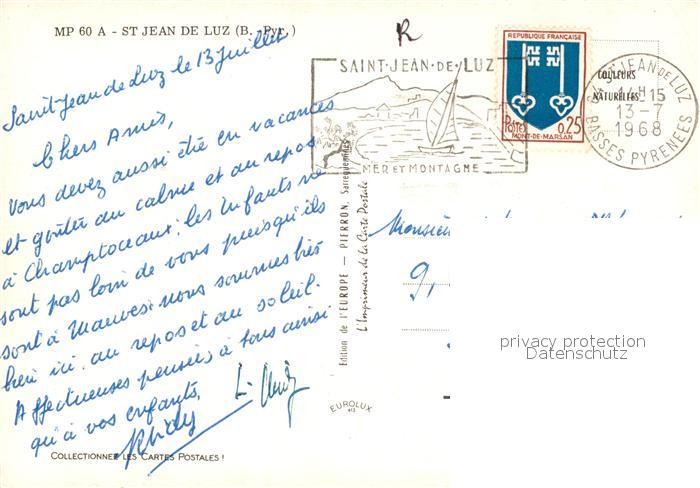 MP 60 A - ST JEAN DE LUZ (B. Pyr.)
R
Saint-Jean de Luz le 13 juillet
Chers Amis,
Vous devez aussi être en vacances
et goûter au calme et au repos
à Champtoceaux; les Enfants ne
sont pas loin de vous puisqu'ils
sont à Mauves. nous sommes très
bien ici au repos et au soleil.
Affectueuses pensées à tous ainsi
qu'à vos enfants.
COLLECTIONNEZ LES CARTES POSTALES !
Édition de l'EUROPE - PIERRON, Sarreguemines
L'Imprimeur de la Carte Postale
EUROLUX
SAINT-JEAN-DE-LUZ
MER ET MONTAGNE
REPUBLIQUE FRANÇAISE
POSTES 0,25
MONT-DE-MARSAN
COULEURS
NATURELLES
ST JEAN DE LUZ
14H15
13-7
1968
BASSES PYRENEES
Monsieur
9,
privacy protection
Datenschutz